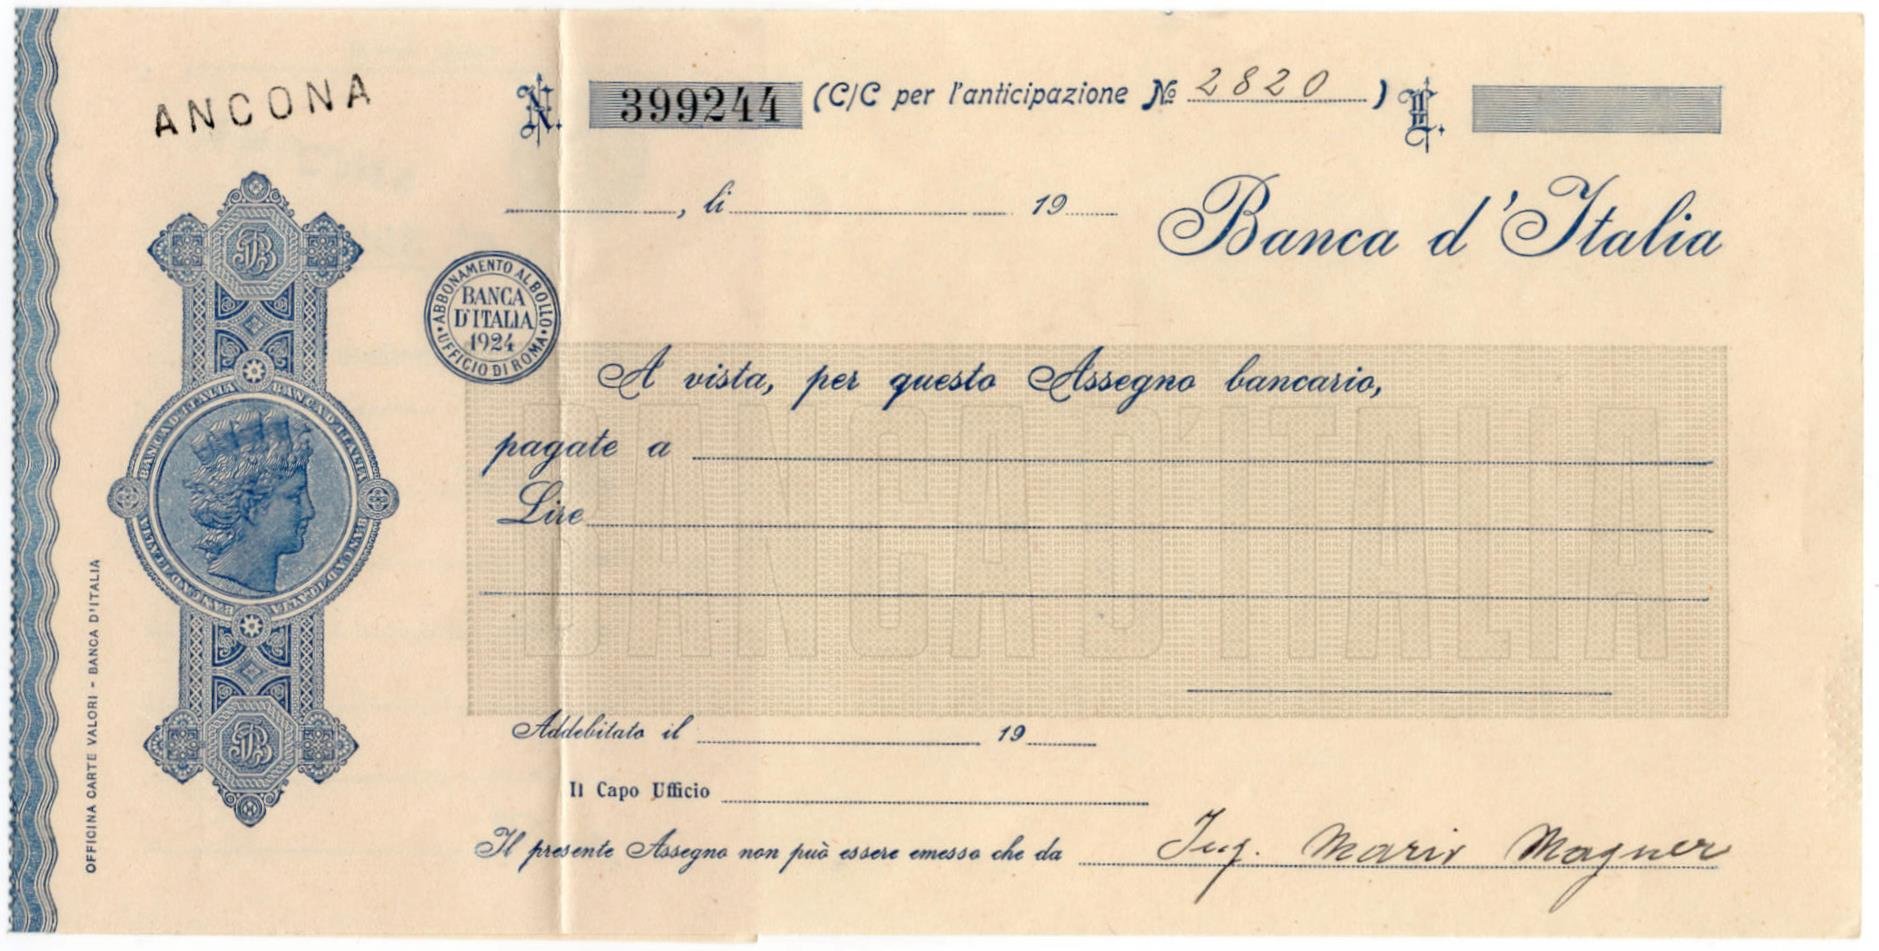 ANCONA
N. 399244 (C/C per l'anticipazione No 2820) L.
, li 19
Banca d'Italia
ABBONAMENTO AL BOLLO
BANCA
D'ITALIA
1924
UFFICIO DI ROMA
A vista, per questo Assegno bancario,
pagate a
Lire
BANCA D'ITALIA
BANCA D'ITALIA BANCA D'ITALIA BANCA D'ITALIA BANCA D'ITALIA
Addebitato il 19
Il Capo Ufficio
Il presente Assegno non può essere emesso che da Ing. Mario Magner
OFFICINA CARTE VALORI - BANCA D'ITALIA